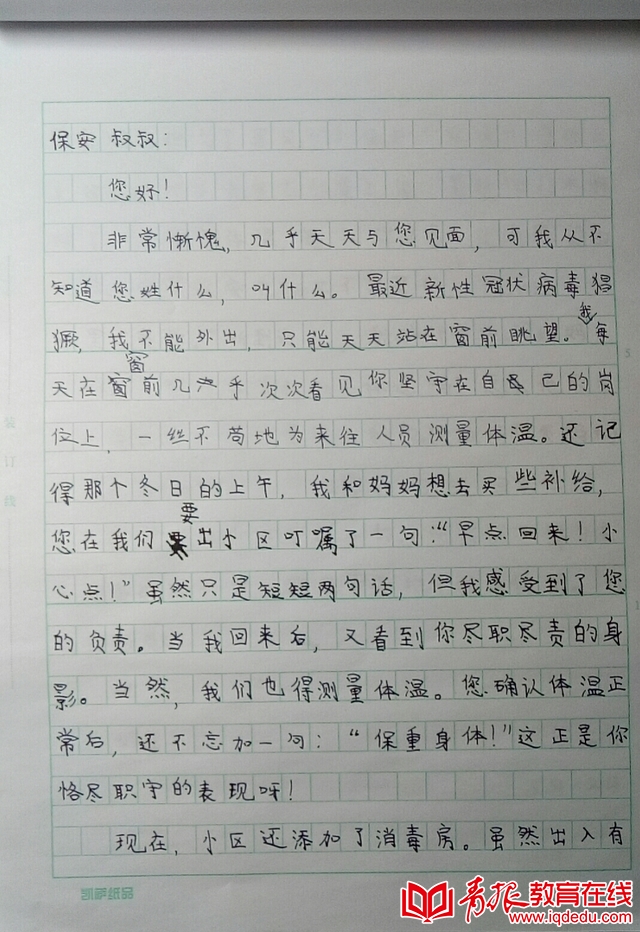 保安叔叔：
您好！
非常惭愧，几乎天天与您见面，可我从不
知道您姓什么，叫什么。最近新性冠状病毒猖
獗，我不能外出，只能天天站在窗前眺望。我每
天在窗前几乎次次看见你坚守在自己的岗
位上，一丝不苟地为来往人员测量体温。还记
得那个冬日的上午，我和妈妈想去买些补给，
您在我们要出小区叮嘱了一句：“早点回来！小
心点！”虽然只是短短两句话，但我感受到了您
的负责。当我回来后，又看到你尽职尽责的身
影。当然，我们也得测量体温。您确认体温正
常后，还不忘加一句：“保重身体！”这正是你
恪尽职守的表现呀！
现在，小区还添加了消毒房。虽然出入有
青报教育在线
www.iqdedu.com